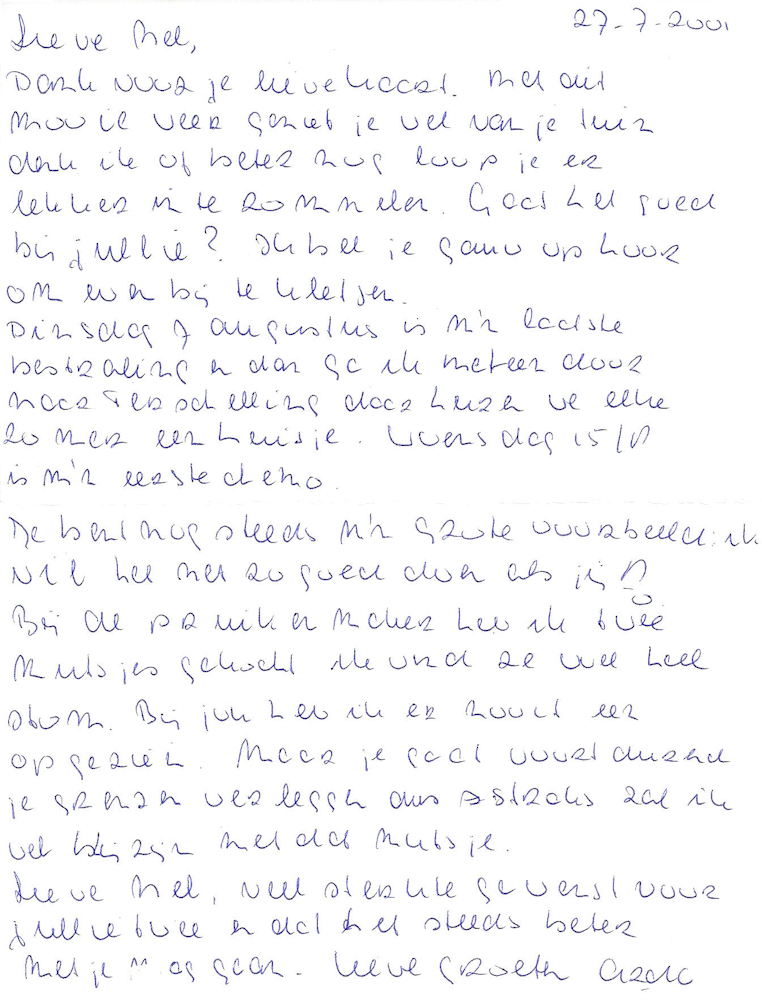 27-7-2001
Lieve Mel,
Dank voor je lieve kaart. Met dit
mooie weer geniet je vol van je tuin
denk ik of beter nog loop je er
lekker in te rommelen. Gaat het goed
bij jullie? Ik bel je gauw op hoor
om even bij te kletsen.
Dinsdag 7 augustus is m'n laatste
bestraling en dan ga ik meteen door
naar Terschelling daar huren we elke
zomer een huisje. Woensdag 15/8
is m'n eerste chemo.
Je bent nog steeds m'n grote voorbeeld: ik
wil het net zo goed doen als jij
Bij de pruikenmaker heb ik twee
mutsjes gekocht ik vind ze wel heel
stom. Bij jou heb ik er nooit een
op gezien. Maar je gaat voortdurend
je grenzen verleggen dus straks zal ik
vel blij zijn met dat mutsje.
Lieve Mel, veel sterkte gewenst voor
jullie twee en dat het steeds beter
met je mag gaan. Lieve groeten